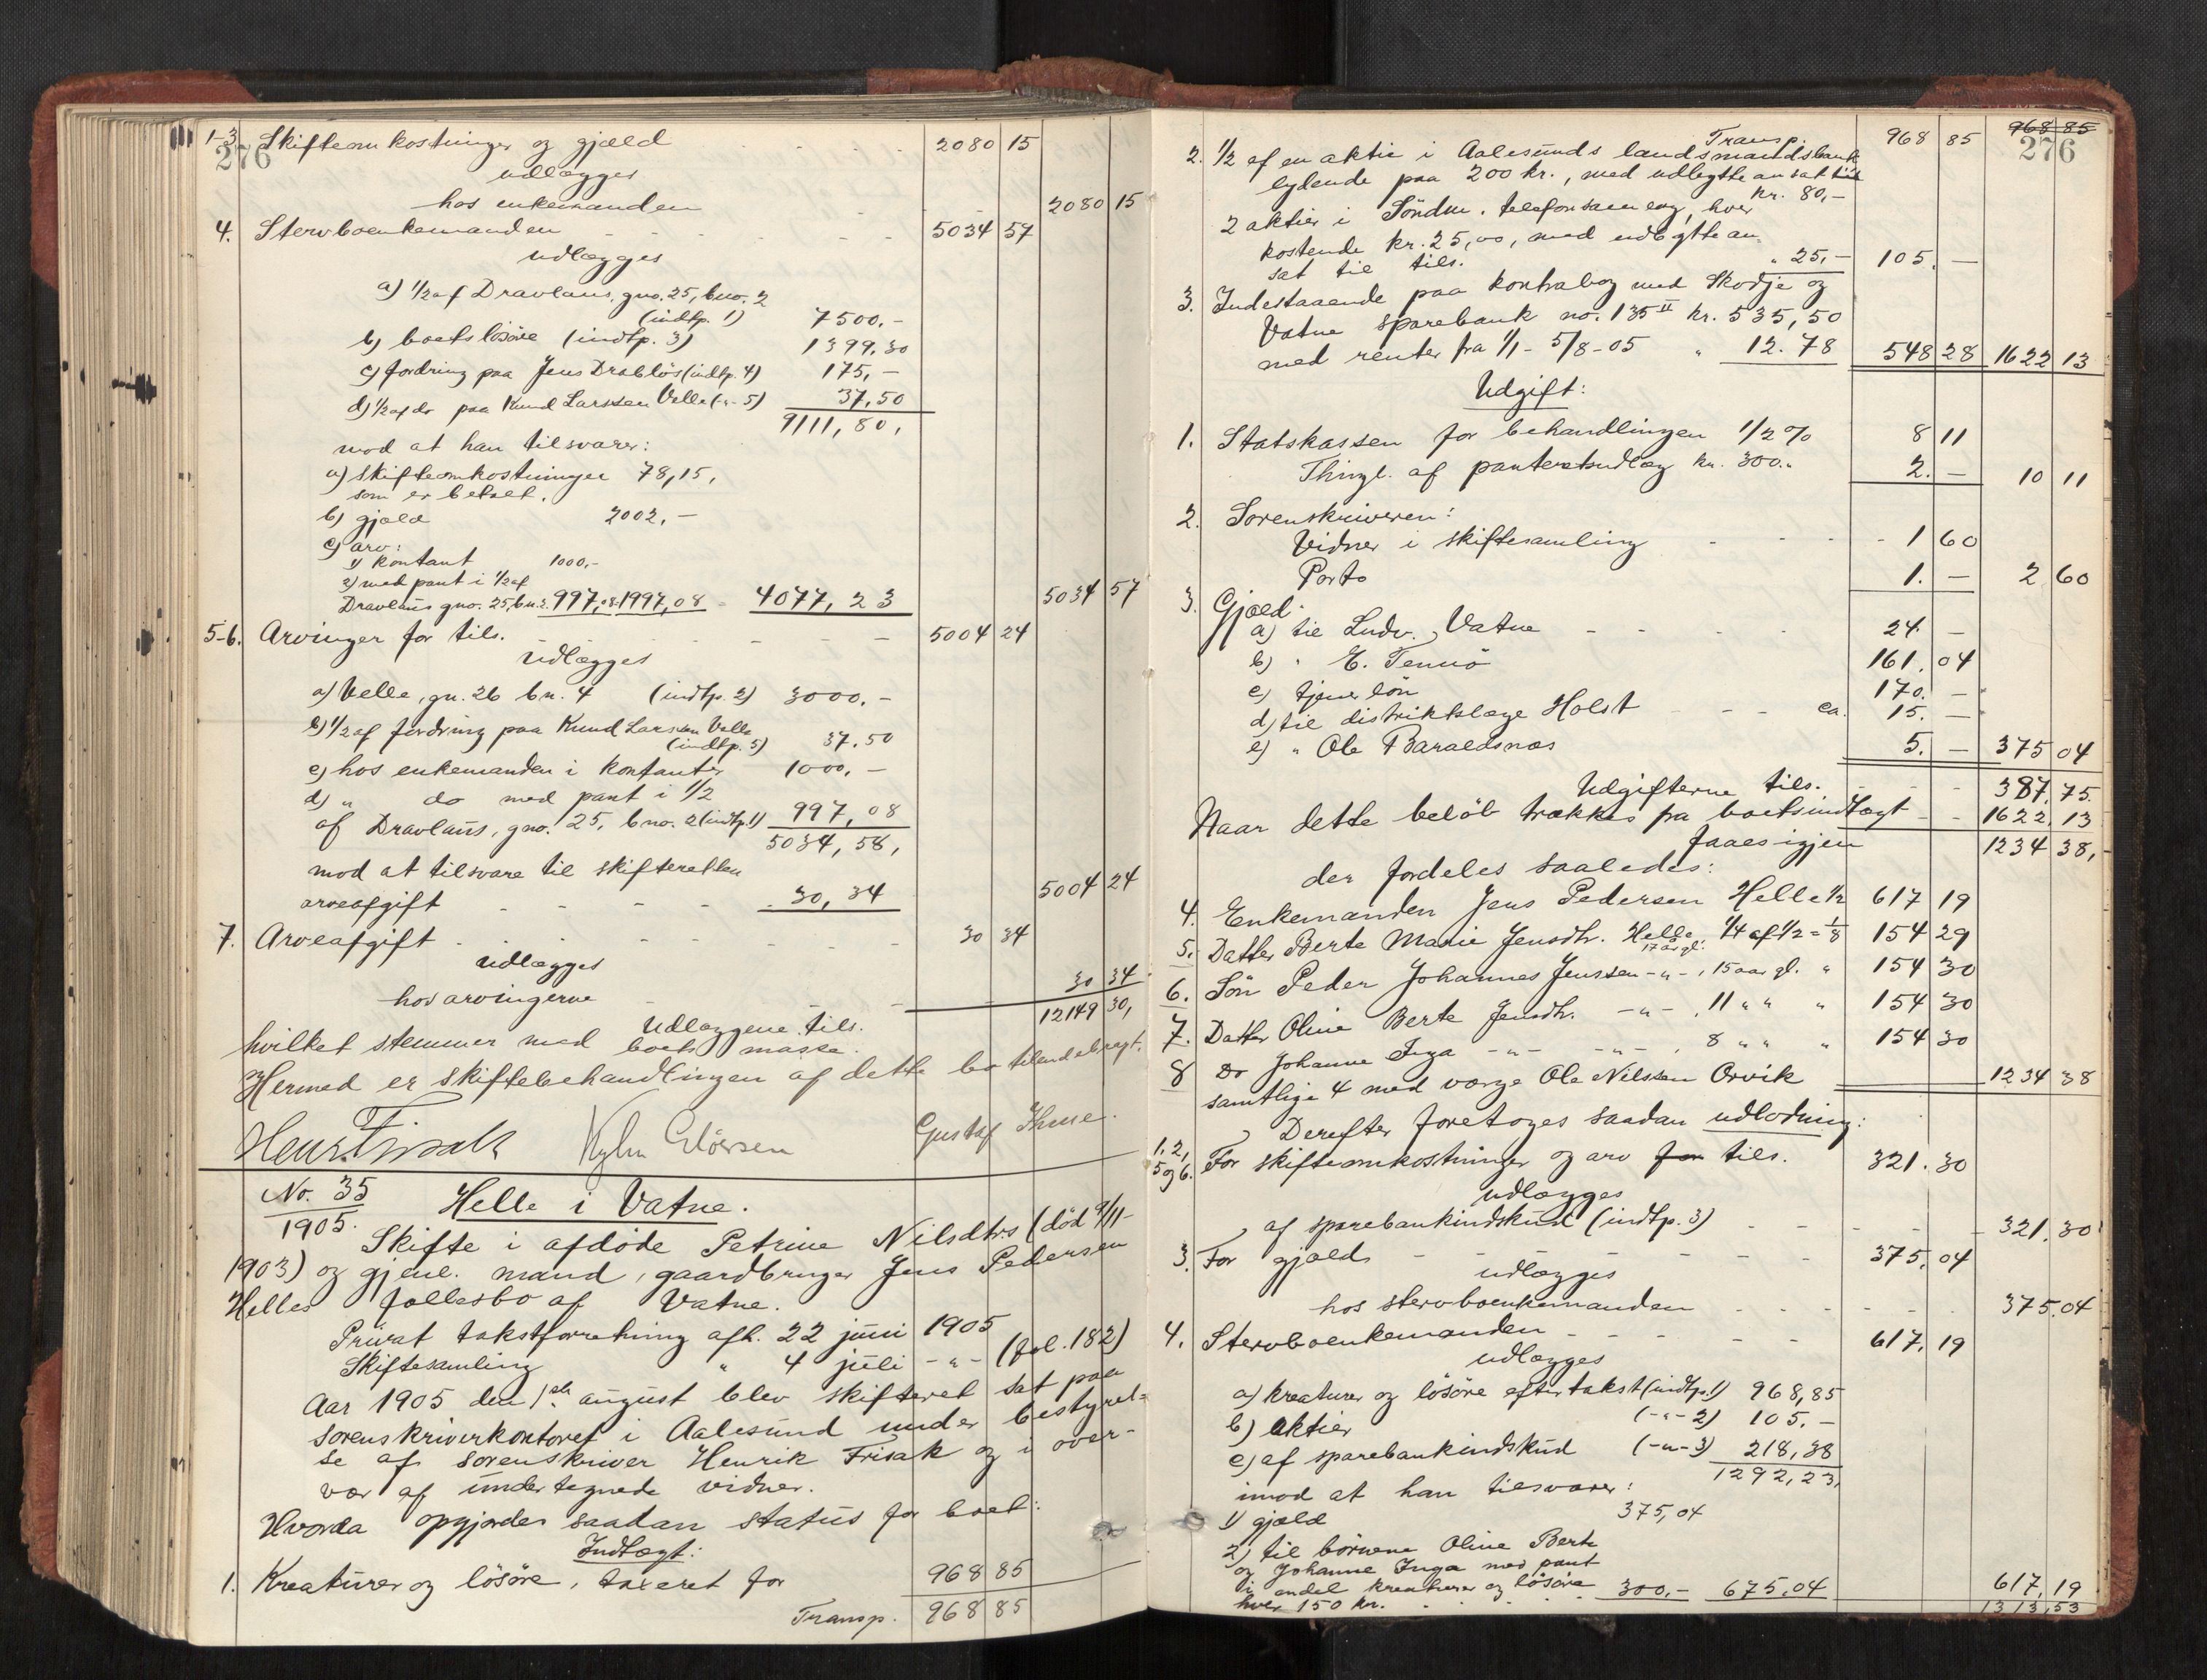 276
1-3. Skifteomkostninger og gjæld - - - - 2080 15
udlægges
hos enkemanden - - - 2080 15
4. Stervboenkemanden - - - - - 5034 57
udlægges
a) 1/2 af Dravlaus, gno. 25, bno. 2
(indtp. 1) 7500.-
b) boets lösöre (indtp. 3) 1399,30
c) fordring paa Jens Drabløs (indtp. 4) 175,-
d) 1/2 af do paa Knud Larssen Velle (-"- 5) 37,50
9111,80,
mod at han tilsvarer:
a) skifteomkostninger 78,15,
som er betalt.
b) gjæld 2002,-
c) arv:
1) kontant 1000,-
2) med pant i 1/2 af
Dravlaus gno. 25, bn. 2. 997,08 1997,08 = 4077,23 5034 57
5-6. Arvinger for tils. - - - - - 5004 24
udlægges
a) Velle, gn. 26 bn. 4 (indtp. 2) 3000.-
b) 1/2 af fordring paa Knud Larssen Velle
(indtp. 5) 37.50
c) hos enkemanden i kontanter 1000.-
d) " do med pant i 1/2
af Dravlaus, gno. 25, bno. 2 (indtp. 1) 997,08
5034,58,
mod at tilsvare til skifteretten
arveafgift - - - - 30,34 5004 24
7. Arveafgift - - - - - - 30 34
udlægges
hos arvingerne - - - 30 34
Udlæggene tils. 12149 30,
hvilket stemmer med boets masse.
Hermed er skiftebehandlingen af dette bo tilendebragt.
Henr Frisak Gustaf Thune.
No. 35
1905. Helle i Vatne.
Skifte i afdöde Petrine Nilsdtrs (död 9/11-
1903) og gjenl. mand, gaardbruger Jens Pedersen
Helles fællesbo af Vatne.
Privat takstforretning afh. 22 juni 1905
Skiftesamling " 4 juli -"- (fol. 182)
Aar 1905 den 1ste august blev skifteret sat paa
sorenskriverkontoret i Aalesund under bestyrel=
se af sorenskriver Henrik Frisak og i over-
vær af undertegnede vidner.
Hvorda opgjordes saadan status for boet:
Indtægt:
1. Kreaturer og lösöre, taxeret for 968 85
Transp. 968 85
276
Transp. 968 85 968 85
2. 1/2 af en aktie i Aalesunds landsmandsbank
lydende paa 200 kr., med udbytte ansat til
kr. 80,-
2 aktier i Söndm. telefonsamlag, hver
kostende kr. 25,00, med udbytte an-
sat til tils. " 25,- 105. -
3. Indestaaende paa kontrabog med Skodje og
Vatne sparebank no. 135 II kr. 535,50
med renter fra 1/1 - 5/8-05 " 12.78 548 28 1622 13
Udgift:
1. Statskassen for behandlingen 1/2 % 8 11
Thingl. af panteretsudlæg kr. 300.- 2. - 10 11
2. Sorenskriveren:
Vidner i skiftesamling - - - - 1 60
Porto 1. - 2 60
3. Gjæld:
a) til Ludv. Vatne - - - - 24. -
b) " E. Tennö 161.04
c) tjenerlön 170. -
d) til distriktslæge Holst - - ca. 15. -
e) " Ole Baraldsnæs 5. - 375 04
Udgifterne tils. - - - 387.75.
Naar dette belöb trækkes fra boets indtægt - - 1622.13
faaes igjen 1234 38,
der fordeles saaledes:
4. Enkemanden Jens Pedersen Helle 1/2 617 19
5. Datter Berte Marie Jensdtr. Helle 1/4 af 1/2 = 1/8 154 29
17 aar gl.
6. Sön Peder Johannes Jenssen -"-, 15 aar gl. " 154 30
7. Datter Oline Berte Jensdtr. -"-, 11 " " " 154 30
8 Do Johanne Inga -"- -"-, 8 " " " 154 30
samtlige 4 med værge Ole Nilssen Orvik 1234 38
Derefter foretoges saadan udlodning:
1, 2,
5 og 6. For skifteomkostninger og arv for tils. 321.30
udlægges
af sparebankindskud (indtp. 3) - - - - - 321.30
3. For gjæld - - - - - 375.04
udlægges
hos stervboenkemanden - - - - - 375.04
4. Stervboenkemanden - - - - - 617.19
udlægges
a) kreaturer og lösöre efter takst (indtp. 1) 968,85
b) aktier (-"- 2) 105.-
c) af sparebankindskud (-"- 3) 218,38
1292,23,
imod at han tilsvarer:
1) gjæld 375,04
2) til börnene Oline Berte
og Johanne Inga med pant
i andel kreaturer og lösöre
hver 150 kr. - - - 300.- 675.04 617.19
1313,53